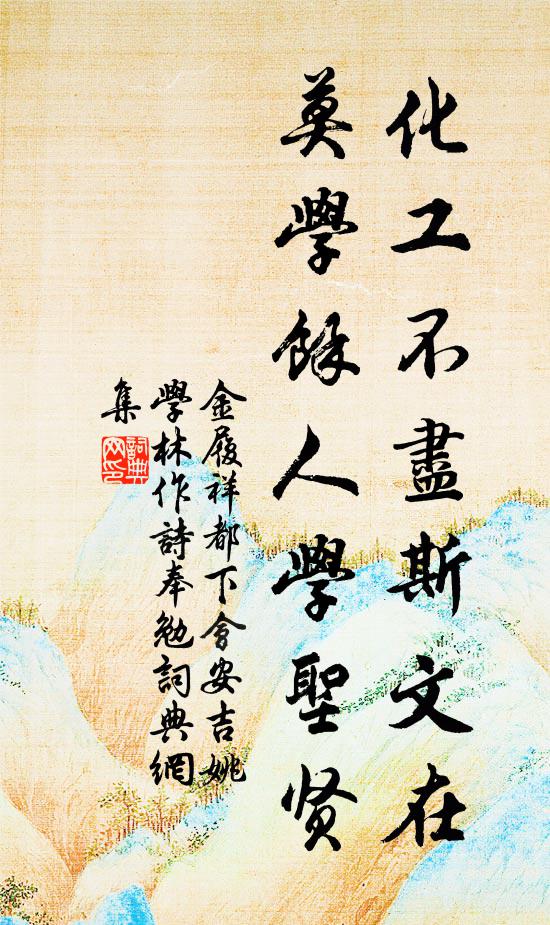 化工不盡斯文在
莫學餘人學聖贤
金履祥都下會安吉姚
學林作詩奉勉詞典網
集
詞典
网印